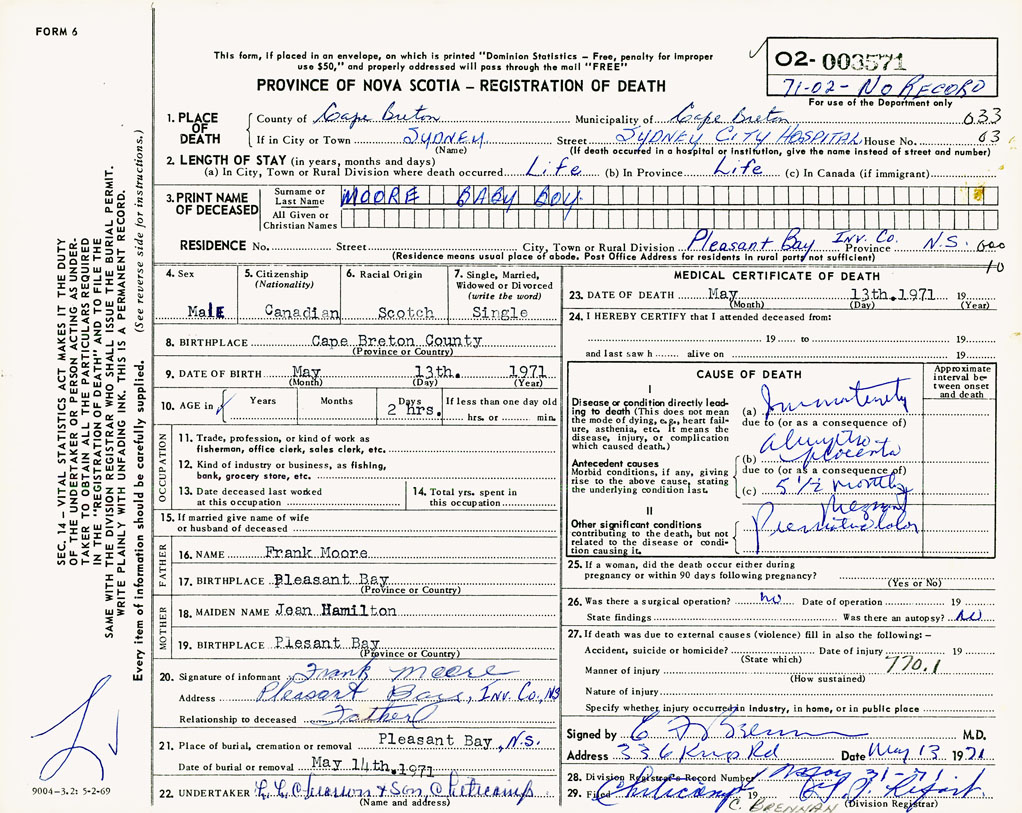 FORM 6
This form, if placed in an envelope, on which is printed "Dominion Statistics – Free, penalty for improper
use $50," and properly addressed will pass through the mail "FREE"
PROVINCE OF NOVA SCOTIA – REGISTRATION OF DEATH
O2- 003571
71-02- NO RECORD
For use of the Department only
1. PLACE OF DEATH
County of Cape Breton Municipality of Cape Breton 033
If in City or Town SYDNEY Street SYDNEY CITY HOSPITAL House No. 03
(Name) (If death occurred in a hospital or institution, give the name instead of street and number)
2. LENGTH OF STAY (in years, months and days)
(a) In City, Town or Rural Division where death occurred Life (b) In Province Life (c) In Canada (if immigrant)
3. PRINT NAME OF DECEASED
Surname or Last Name MOORE BABY BOY
All Given or Christian Names
RESIDENCE No. Street City, Town or Rural Division Pleasant Bay Inv. Co. Province N.S. 000
(Residence means usual place of abode. Post Office Address for residents in rural parts not sufficient)
10
4. Sex
Male
5. Citizenship (Nationality)
Canadian
6. Racial Origin
Scotch
7. Single, Married, Widowed or Divorced (write the word)
Single
8. BIRTHPLACE Cape Breton County
(Province or Country)
9. DATE OF BIRTH May 13th. 1971
(Month) (Day) (Year)
10. AGE in Years Months Days If less than one day old
2 hrs. hrs. or min.
OCCUPATION
11. Trade, profession, or kind of work as
fisherman, office clerk, sales clerk, etc.
12. Kind of industry or business, as fishing,
bank, grocery store, etc.
13. Date deceased last worked at this occupation
14. Total yrs. spent in this occupation
15. If married give name of wife
or husband of deceased
FATHER
16. NAME Frank Moore
17. BIRTHPLACE Pleasant Bay
(Province or Country)
MOTHER
18. MAIDEN NAME Jean Hamilton
19. BIRTHPLACE Plesant Bay
(Province or Country)
20. Signature of informant Frank Moore
Address Pleasant Bay, Inv. Co., NS
Relationship to deceased Father
21. Place of burial, cremation or removal Pleasant Bay, N.S.
Date of burial or removal May 14th. 1971
22. UNDERTAKER & Son Cheticamp
(Name and address)
MEDICAL CERTIFICATE OF DEATH
23. DATE OF DEATH May 13th. 1971 19
(Month) (Day) (Year)
24. I HEREBY CERTIFY that I attended deceased from:
19 to 19
and last saw h alive on 19
CAUSE OF DEATH
Approximate interval between onset and death
I
Disease or condition directly leading to death (This does not mean the mode of dying, e.g., heart failure, asthenia, etc. It means the disease, injury, or complication which caused death.)
(a) Immaturity
due to (or as a consequence of)
Antecedent causes
Morbid conditions, if any, giving rise to the above cause, stating the underlying condition last.
(b) placenta
due to (or as a consequence of)
(c) 5 1/2 months
II
Other significant conditions
contributing to the death, but not related to the disease or condition causing it.
25. If a woman, did the death occur either during
pregnancy or within 90 days following pregnancy?
(Yes or No)
26. Was there a surgical operation? no Date of operation 19
State findings Was there an autopsy? no
27. If death was due to external causes (violence) fill in also the following: –
Accident, suicide or homicide? Date of injury 19
(State which)
Manner of injury 770.1
(How sustained)
Nature of injury
Specify whether injury occurred in industry, in home, or in public place
Signed by C F Brennan M.D.
Address 336 Kings Rd Date May 13 1971
28. Division Registrar's Record Number
29. Filed Cheticamp 19
C. BRENNAN (Division Registrar)
SEC. 14 – VITAL STATISTICS ACT MAKES IT THE DUTY
OF THE UNDERTAKER OR PERSON ACTING AS UNDER-
TAKER TO OBTAIN ALL THE PARTICULARS REQUIRED
IN THE "REGISTRATION OF DEATH" AND TO FILE THE
SAME WITH THE DIVISION REGISTRAR WHO SHALL ISSUE THE BURIAL PERMIT.
WRITE PLAINLY WITH UNFADING INK. THIS IS A PERMANENT RECORD.
Every item of information should be carefully supplied. (See reverse side for instructions.)
9004-3.2: 5-2-69